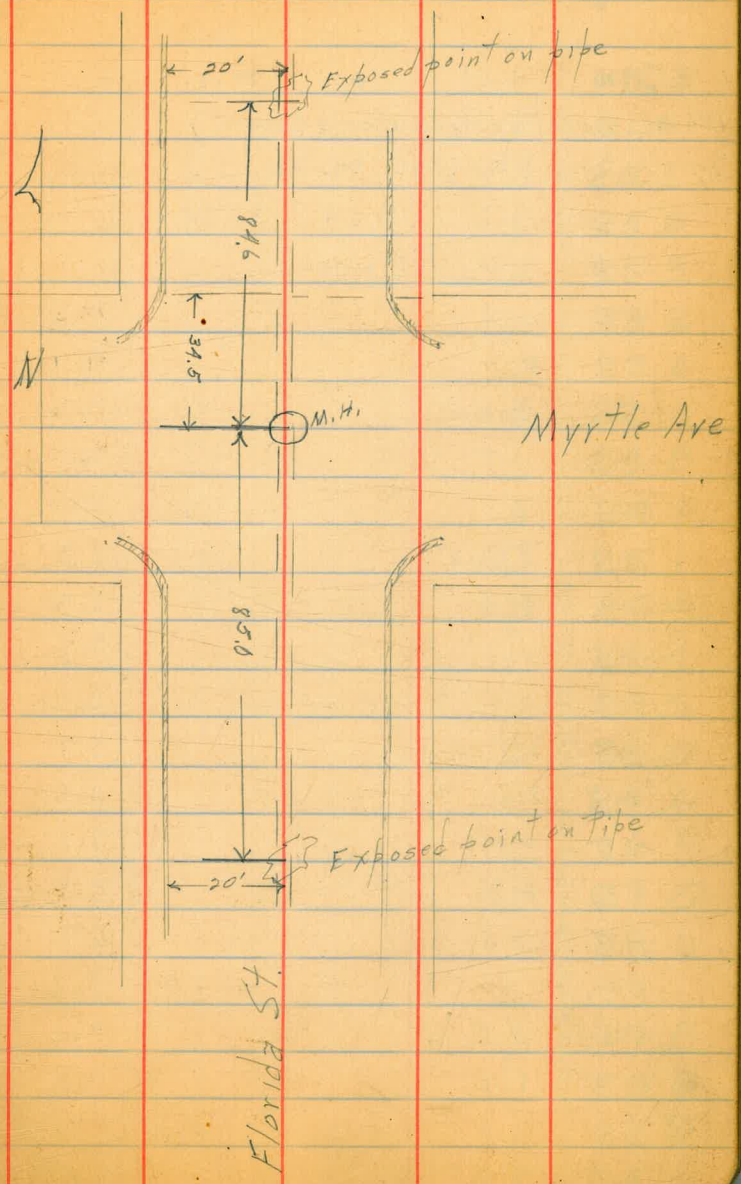 20'
Exposed point on pipe
84.6
34.5
N
M.H.
Myrtle Ave
85.0
Exposed point on Pipe
20'
Florida St.